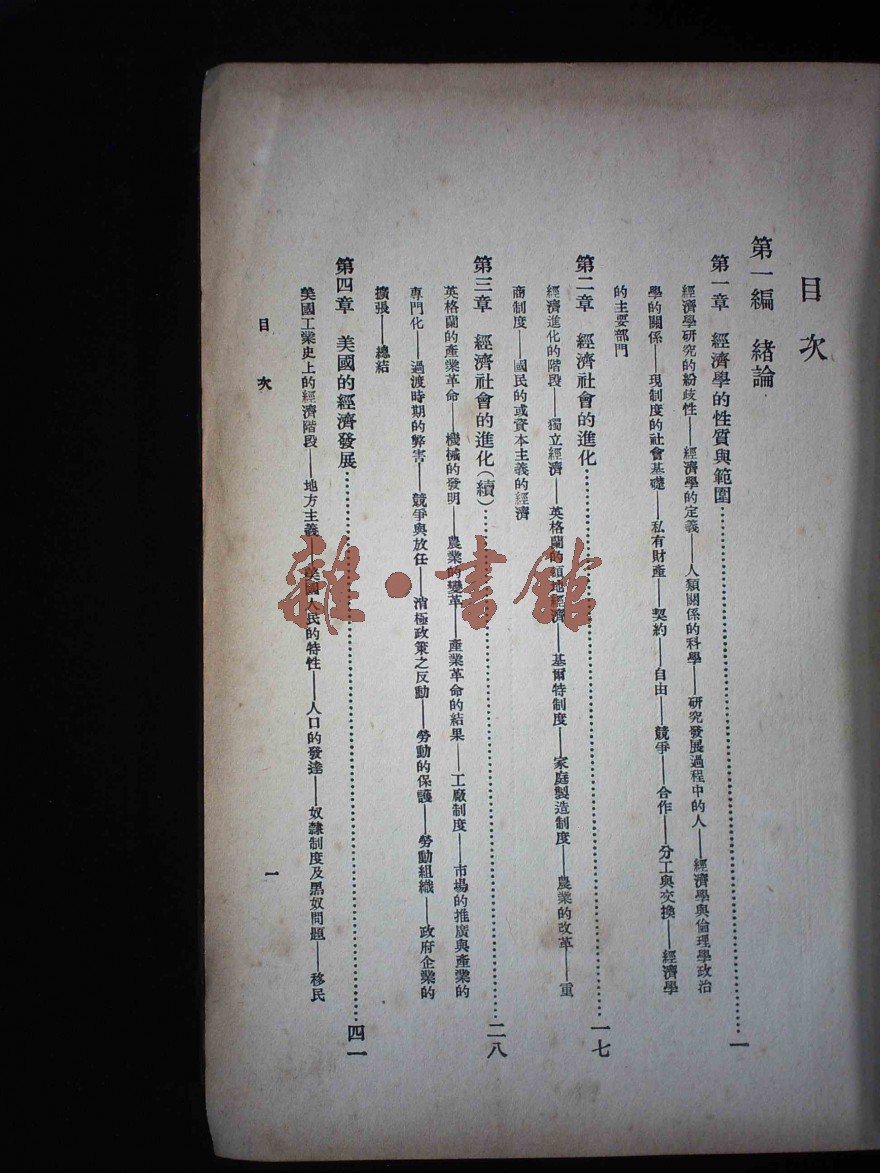 目次
第一編 緒論
第一章 經濟學的性質與範圍……一
經濟學研究的紛歧性——經濟學的定義——人類關係的科學——研究發展過程中的人——經濟學與倫理學政治
學的關係——現制度的社會基礎——私有財產——契約——自由——競爭——合作——分工與交換——經濟學
的主要部門
第二章 經濟社會的進化……一七
經濟進化的階段——獨立經濟——英格蘭的領地經濟——基爾特制度——家庭製造制度——農業的改革——重
商制度——國民的或資本主義的經濟
第三章 經濟社會的進化(續)……二八
英格蘭的產業革命——機械的發明——農業的變革——產業革命的結果——工廠制度——市場的推廣與產業的
專門化——過渡時期的弊害——競爭與放任——消極政策之反動——勞動的保護——勞動組織——政府企業的
擴張——總結
第四章 美國的經濟發展……四一
美國工業史上的經濟階段——地方主義——美國人民的特性——人口的發達——奴隸制度及黑奴問題——移民
目次
一
雜·書館